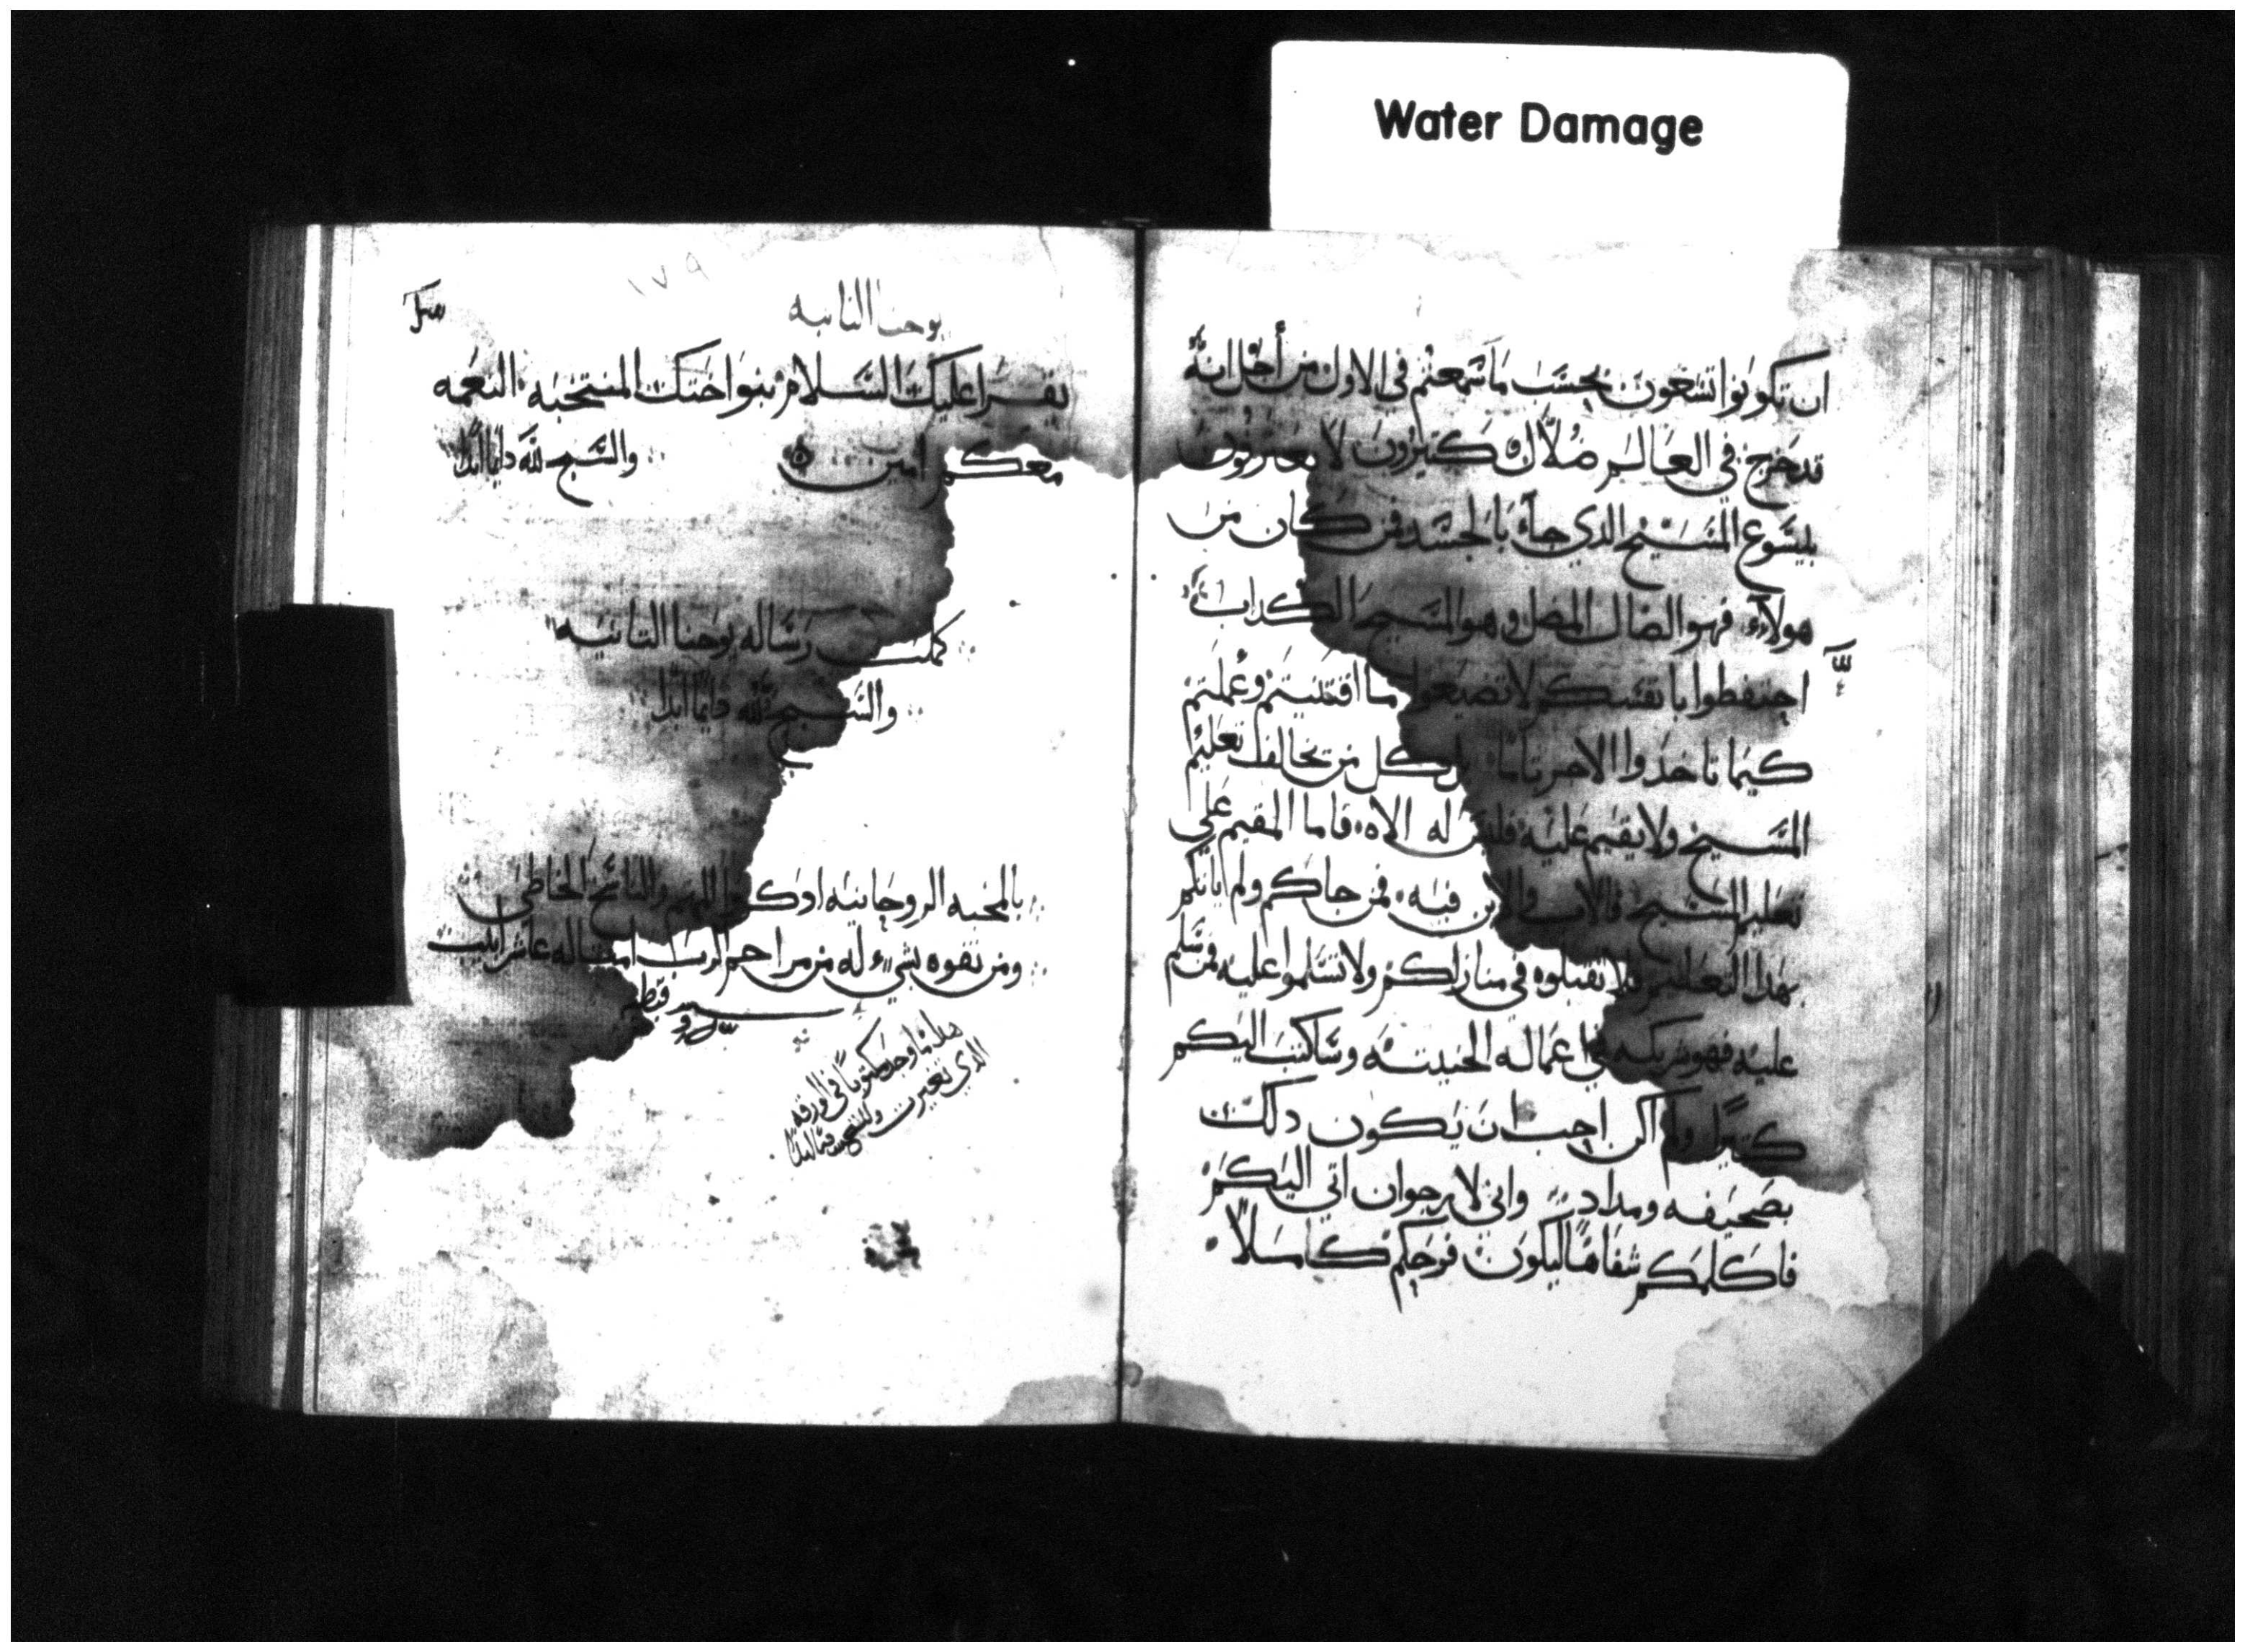 Water Damage
ان تكونوا تسعون بحسب ما سمعتم في الاول من أجل انه
قد خرج في العالم ضلال كتيرون لا يعترفون
بيسوع المسيح الذي جاء بالجسد فمن كان من
هولاء فهو الضال المضل وهو المسيح الكداب
احتفظوا بانفسكم لا تضيعوا ما اقتنيتم وعملتم
كيما تاخدوا الاجر تاما لان كل من يخالف تعليم
المسيح ولا يقيم عليه فليس له الاه فاما المقيم علي
تعليم المسيح فالاب والابن فيه فمن جاكم ولم ياتكم
بهدا التعليم فلا تقبلوه في منازلكم ولا تسلموا عليه فمن سلم
عليه فهو شريكه في اعماله الخبيته وساكتب اليكم
كتيرا ولم اكن احب ان يكون دلك
بصحيفه ومداد واني لارجوان اتي اليكم
فاكلمكم شفاها ليكون فرحكم كاملا
١٧٩
يوحنا التانيه
يقرا عليك السلام بنوا اختك المنتخبه النعمه
معكم امين والسبح لله دايما ابدا
كملت رساله يوحنا التانيه
والسبح لله دايما ابدا
بالمحبه الروحانيه ادكروا المهتم والناسخ الخاطي
ومن تفوه بشيء له من مراحم الرب امتاله
هدا ما وجد مكتوبا في الورقه
الدي تغيرت